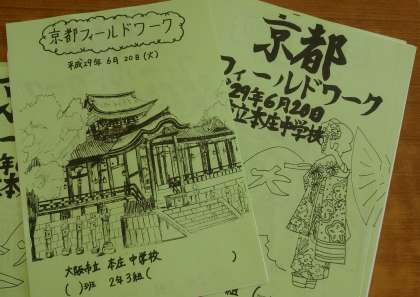 京都フィールドワーク
平成29年 6月 20日 (火)
大阪市立 本庄 中学校
( )班 2年3組( )
京都
フィールドワーク
29年6月20日
立本庄中学校